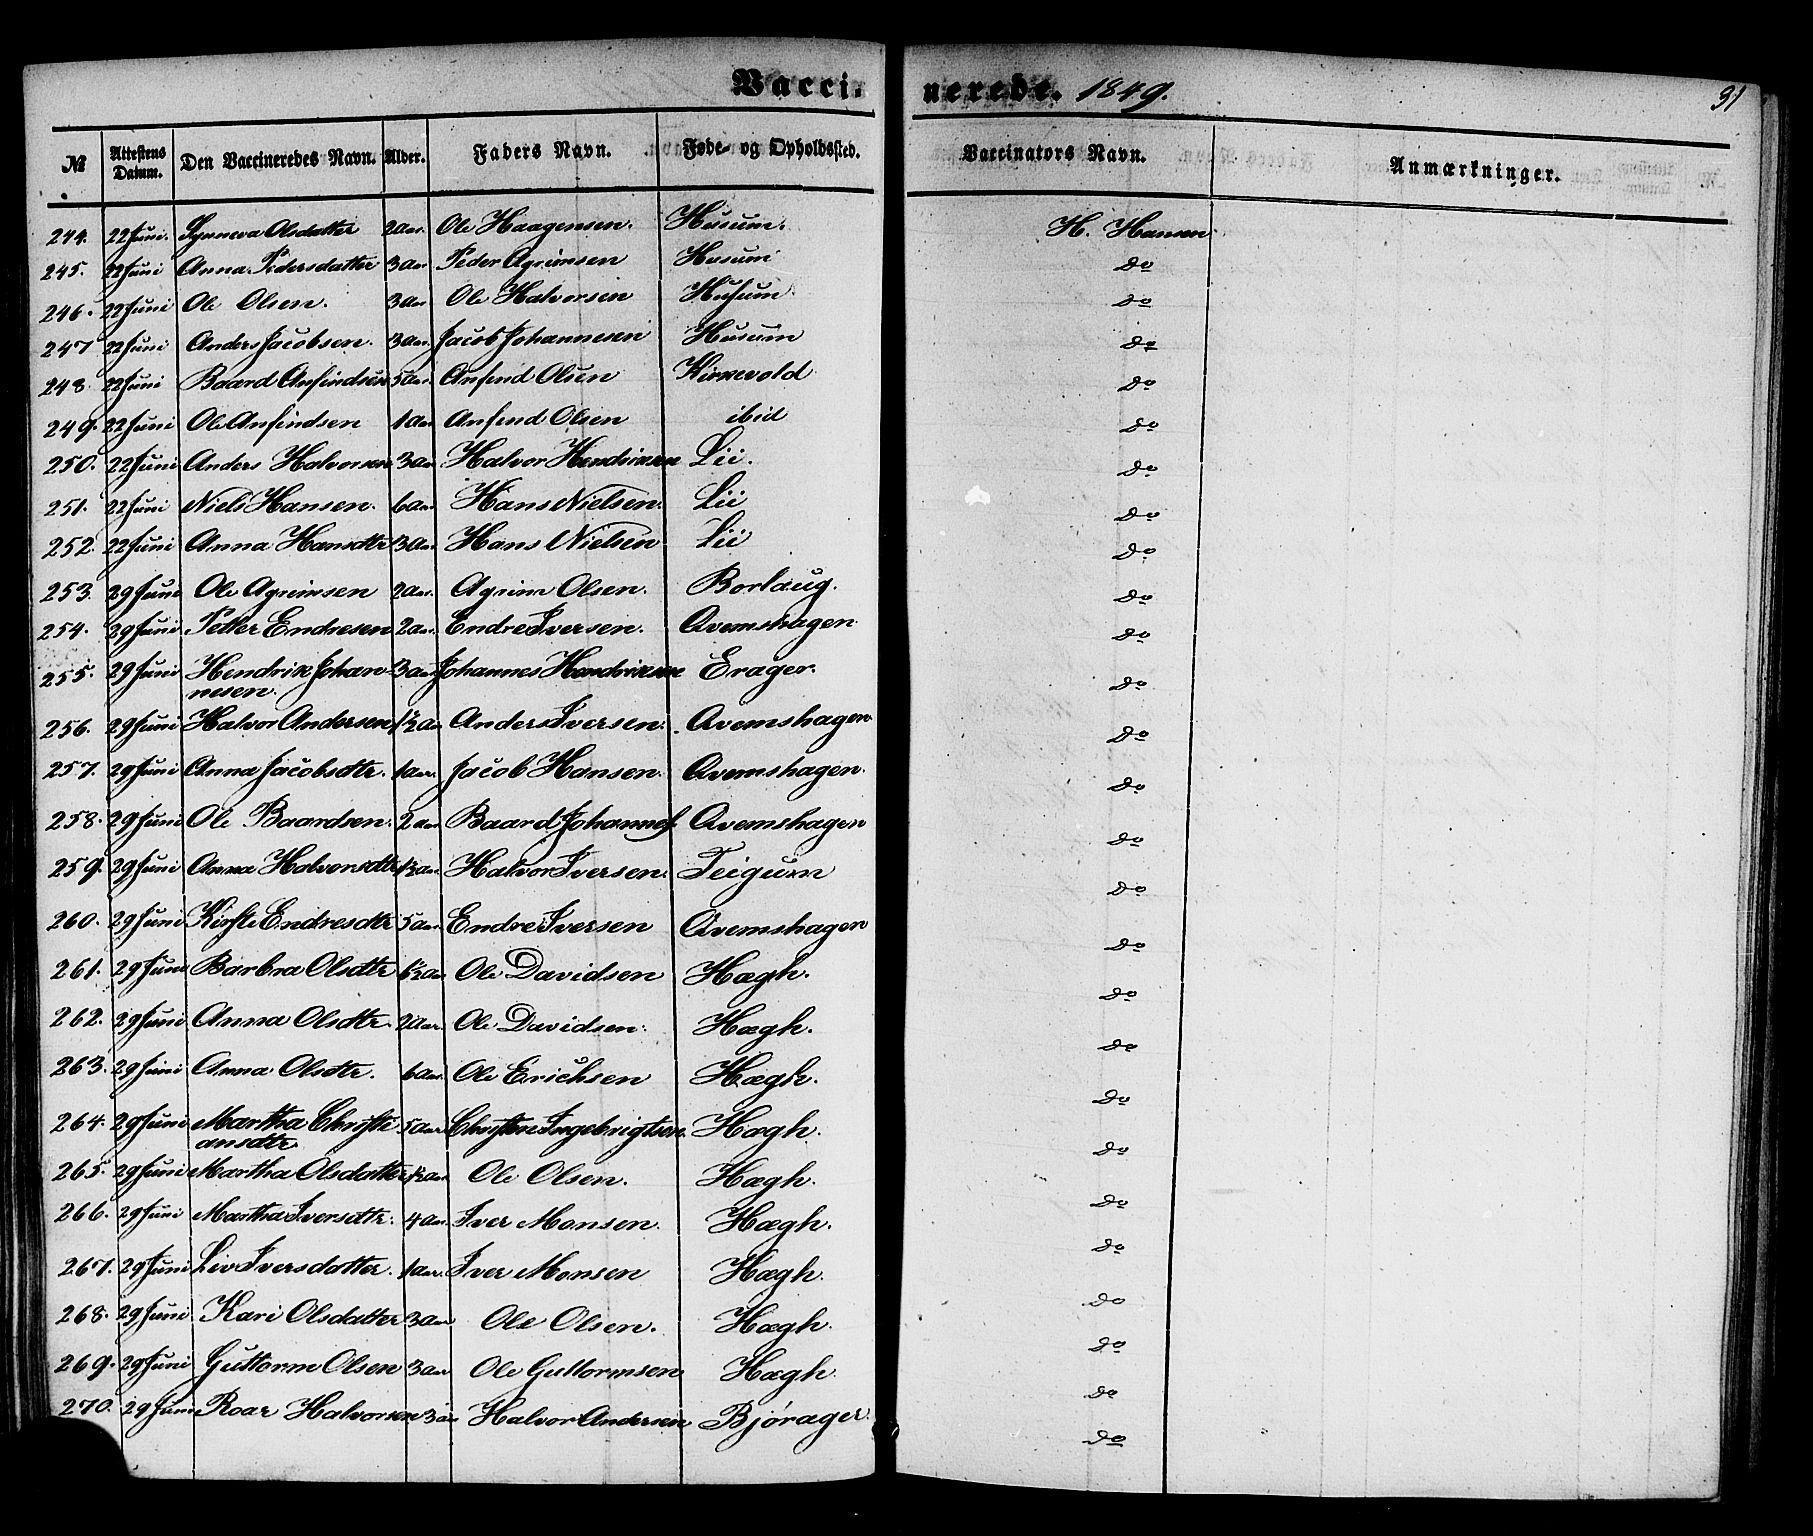 Vaccinerede. 1849. 31
№ Attestens Datum. Den Vaccineredes Navn. Alder. Faders Navn. Føde- og Opholdssted. Vaccinators Navn. Anmærkninger.
244. 22 Juni. Synneva Olsdatter 2 aar. Ole Haagensen. Husum. H. Hansen
245. 22 Juni Anna Pedersdatter 3 aar Peder Agrimsen Husum do
246. 22 Juni Ole Olsen. 3 aar Ole Halvorsen Husum. do
247 22 Juni Anders Jacobsen. 3 aar. Jacob Johannesen Husum do
248. 22 Juni Baard Anfindsen 5 aar. Anfind Olsen Kirkevold do
249. 22 Juni Ole Anfindsen 1 aar Anfind Olsen ibid do
250. 22 Juni Anders Halvorsen 3 aar Halvor Hendriksen Lii. do
251. 22 Juni Niels Hansen. 6 aar. Hans Nielsen. Lii do
252. 22 Juni Anna Hansdtr 3 aar Hans Nielsen Lii do
253. 29 Juni Ole Agrimsen 2 aar. Agrim Olsen. Borlaug. do
254. 29 Juni Petter Endresen 2 aar. Endre Iversen. Qvemshagen do
255. 29 Juni Hendrik Johan- 3 aar Johannes Hendriksen Erager. do
nesen.
256. 29 Juni Halvor Andersen 1½ aar Anders Iversen. Qvemshagen do
257. 29 Juni Anna Jacobsdtr. 1 aar. Jacob Hansen. Qvemshagen. do
258. 29 Juni Ole Baardsen. 2 aar Baard Johannes. Qvemshagen do
259. 29 Juni Anna Halvorsdtr 1½ aar Halvor Iversen. Teigum do
260. 29 Juni Kirste Endresdtr 5 aar Endre Iversen Qvemshagen do
261. 29 Juni Barbra Olsdtr 1½ aar Ole Davidsen Hægh. do
262. 29 Juni Anna Olsdtr. 2 aar. Ole Davidsen. Hægh. do
263. 29 Juni Anna Olsdtr. 6 aar. Ole Erichsen Hægh. do
264. 29 Juni Martha Christi 5 aar Christen Ingebrigtsen. Hægh. do
ansdtr
265. 29 Juni Martha Olsdatter ½ aar Ole Olsen. Hægh. do
266. 29 Juni Martha Iversdtr. 4 aar Iver Monsen. Hægh. do
267. 29 Juni Liv Iversdatter. 1 aar. Iver Monsen Hægh. do
268. 29 Juni Kari Olsdatter 3 aar Ole Olsen. Hægh. do
269. 29 Juni Guttorm Olsen 3 aar Ole Guttormsen Hægh. do
270. 29 Juni Roar Halvorsen 3 aar Halvor Andersen Bjørager. do